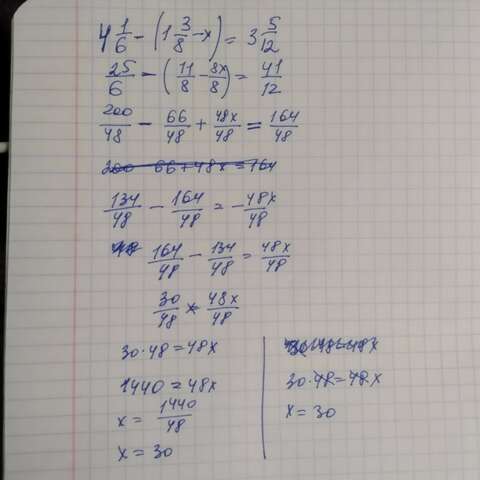 4 1/6 - (1 3/8 - x) = 3 5/12
25/6 - (11/8 - 8x/8) = 41/12
200/48 - 66/48 + 48x/48 = 164/48
200 66 + 48x = 164
134/48 - 164/48 = - 48x/48
164/48 - 134/48 = 48x/48
30/48 × 48x/48
30·48 = 48x
1440 = 48x
x = 1440/48
x = 30
30·48 = 48x
x = 30